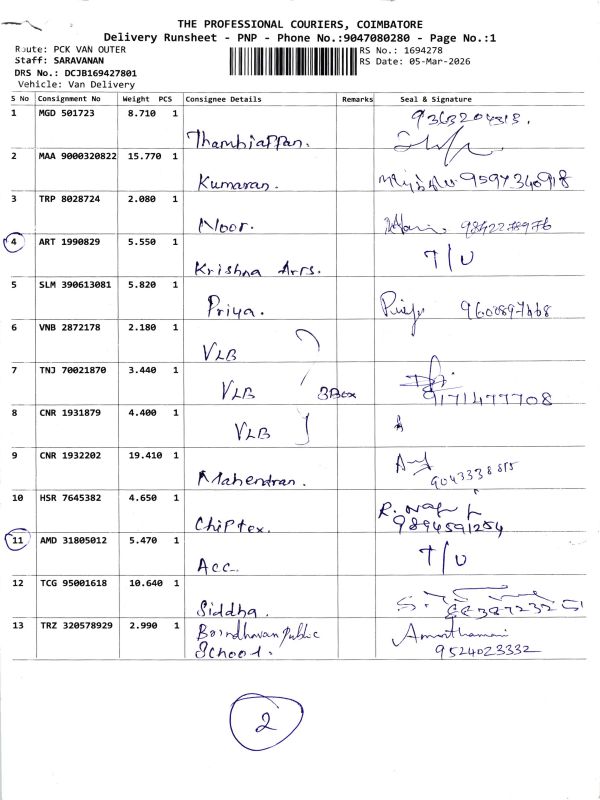 THE PROFESSIONAL COURIERS, COIMBATORE
Delivery Runsheet - PNP - Phone No.:9047080280 - Page No.:1
Route: PCK VAN OUTER
Staff: SARAVANAN
DRS No.: DCJB169427801
Vehicle: Van Delivery
RS No.: 1694278
RS Date: 05-Mar-2026
S No Consignment No Weight PCS Consignee Details Remarks Seal & Signature
1 MGD 501723 8.710 1 Thambiappan.
2 MAA 9000320822 15.770 1 Kumaran. 9597340918
3 TRP 8028724 2.080 1 Noor. 9842278976
4 ART 1990829 5.550 1 Krishna Arrs. T/U
5 SLM 390613081 5.820 1 Priya.
6 VNB 2872178 2.180 1 VLB
7 TNJ 70021870 3.440 1 VLB 3Box 9171477708
8 CNR 1931879 4.400 1 VLB
9 CNR 1932202 19.410 1 Mahendran.
10 HSR 7645382 4.650 1 Chiptex. 9894591254
11 AMD 31805012 5.470 1 Acc. T/U
12 TCG 95001618 10.640 1 Siddha.
13 TRZ 320578929 2.990 1 Brindhavan Public School. 9524023332
2